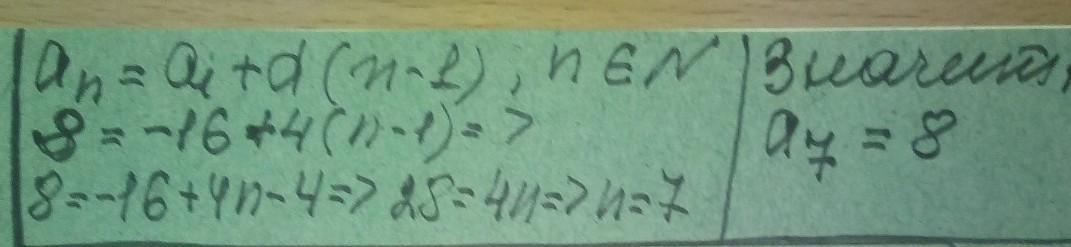 aₙ = a₁ + d (n-1), n ∈ N
8 = -16 + 4(n-1) =>
8 = -16 + 4n - 4 => 28 = 4n => n = 7
Значит,
a₇ = 8